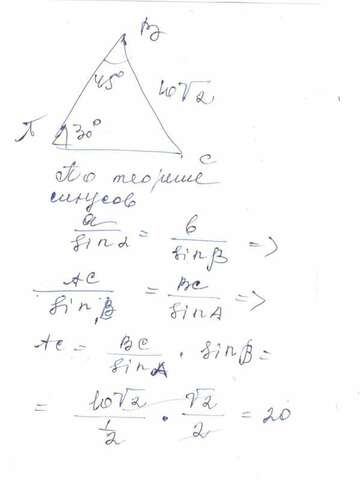 B
45°
10√2
A
30°
C
По теореме
синусов
a/sin α = b/sin β =>
AC/sin B = BC/sin A =>
AC = BC/sin A · sin B =
= 10√2/(1/2) · √2/2 = 20